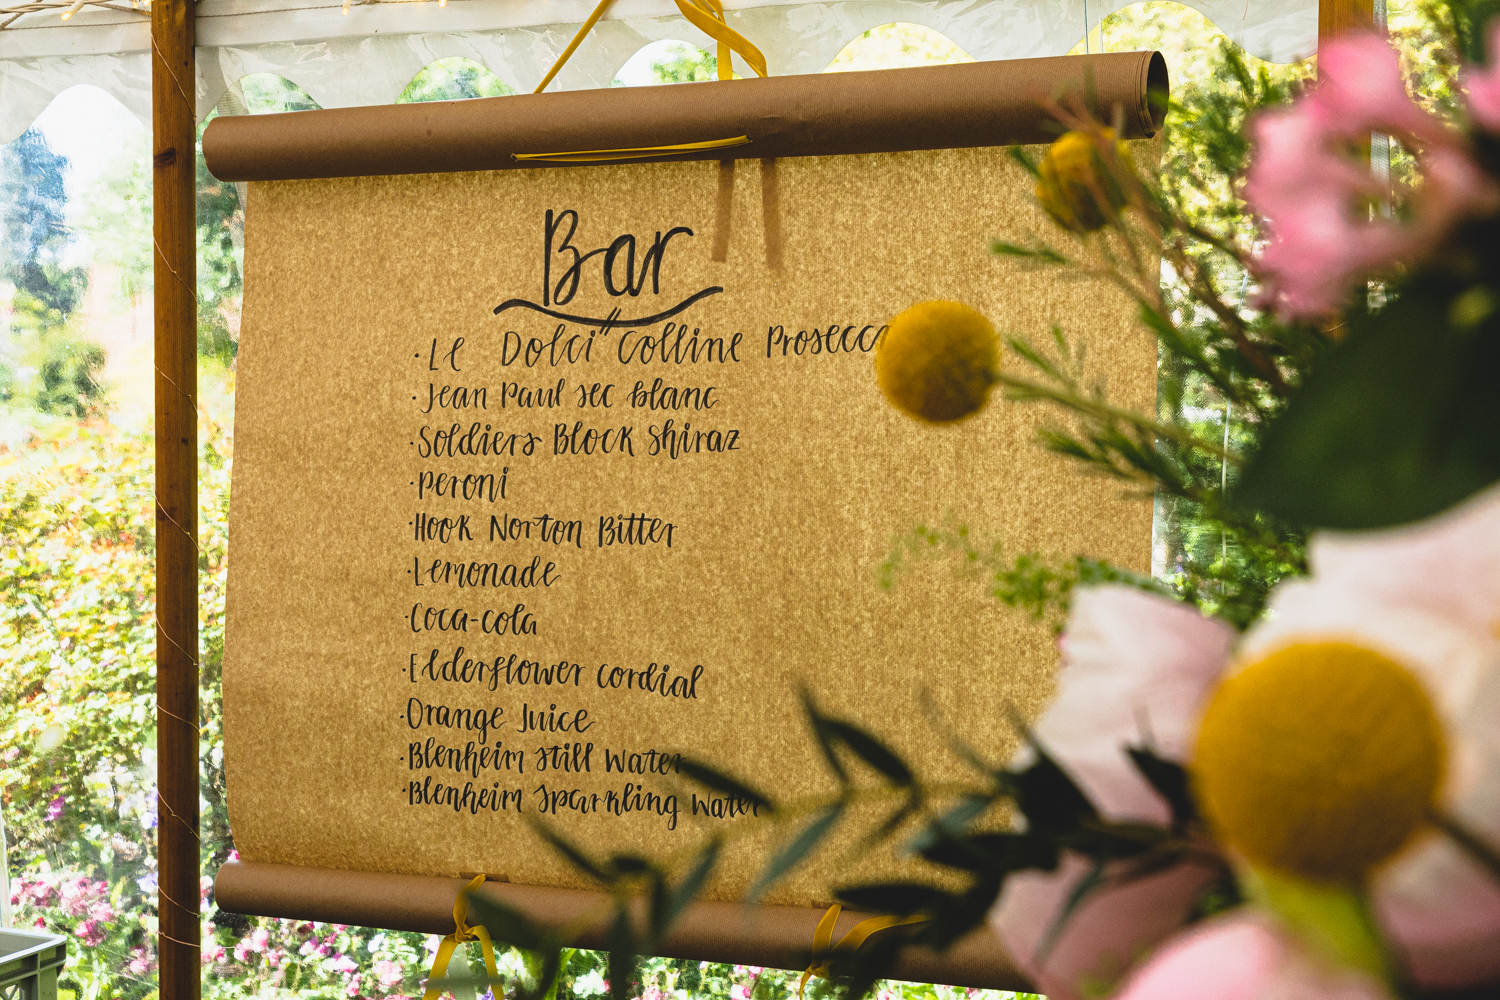 Bar
· Le Dolci Colline Prosecco
· Jean Paul sec blanc
· Soldiers Block Shiraz
· Peroni
· Hook Norton Bitter
· Lemonade
· Coca-cola
· Elderflower cordial
· Orange Juice
· Blenheim Still Water
· Blenheim Sparkling Water